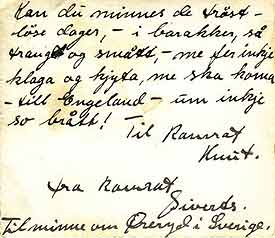 Kan du minnes de tröst-
löse dager, - i barakker, så
trangt og smått, - me fer inkje
klaga og kyta, me ska koma
- till Engeland - um inkje
so brått! -
Til Kamrat
Knut.
fra Kamrat
Siverts.
Til minne om Öreryd i Sverige.